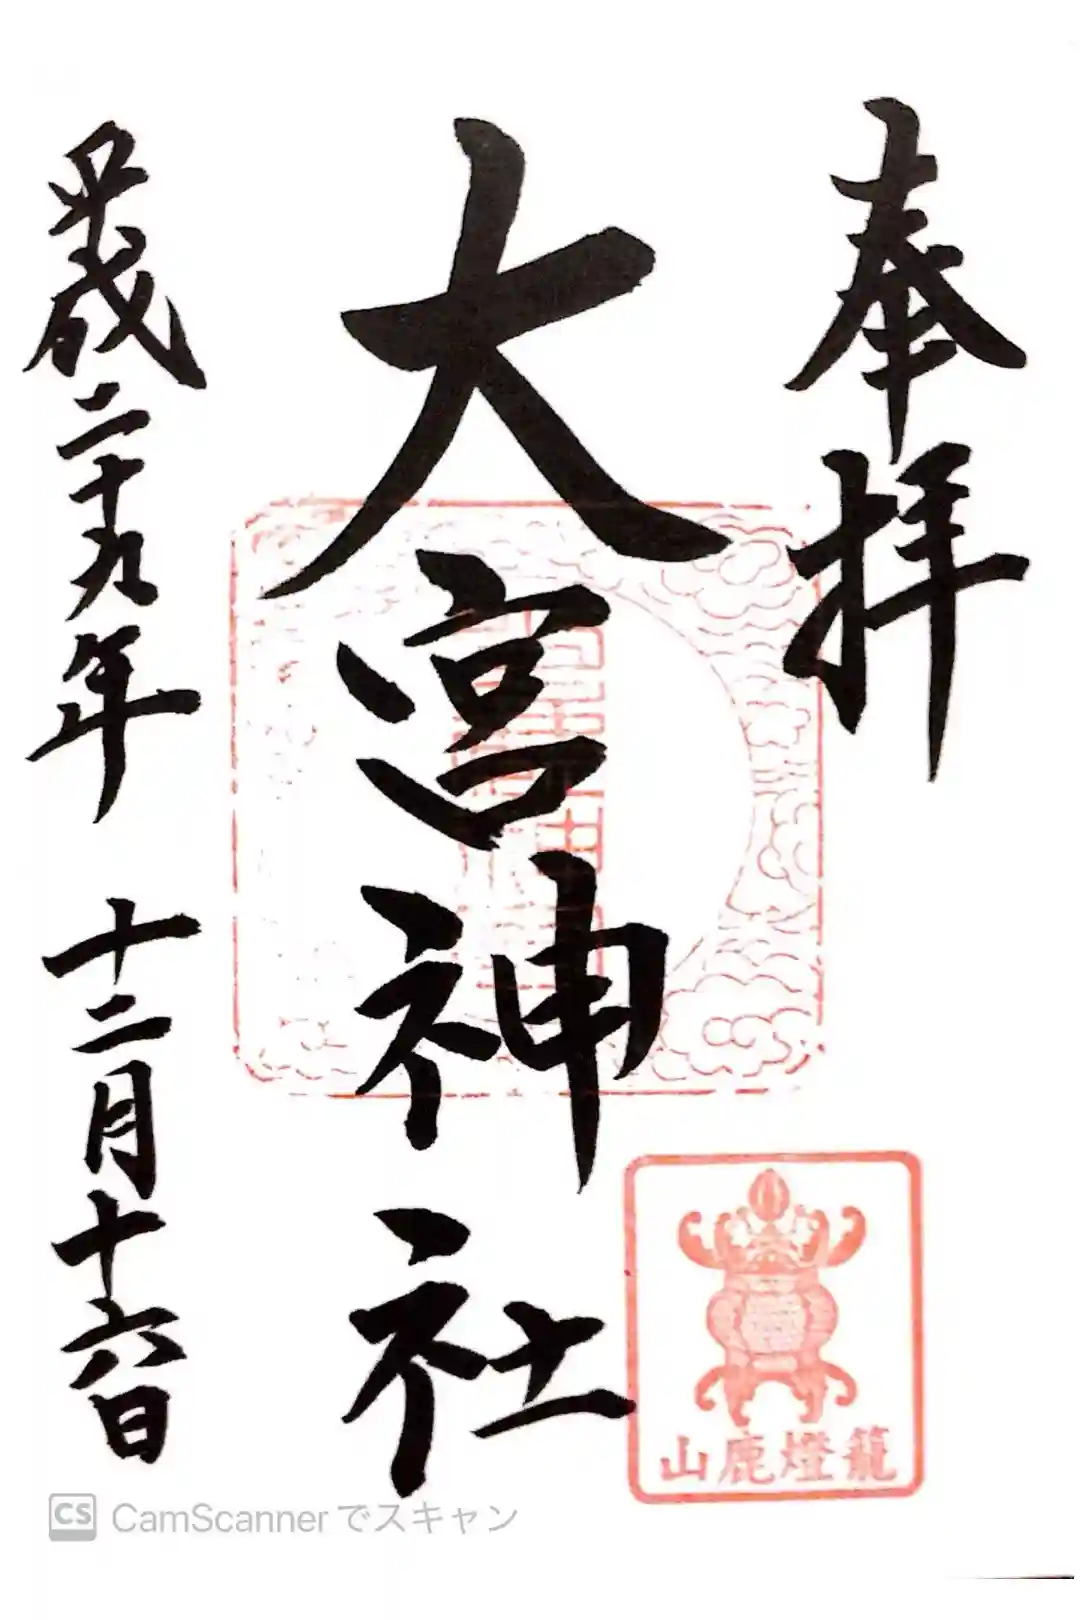 奉拝
大宮神社
平成二十九年 十二月十六日
山鹿燈籠
CS CamScannerでスキャン